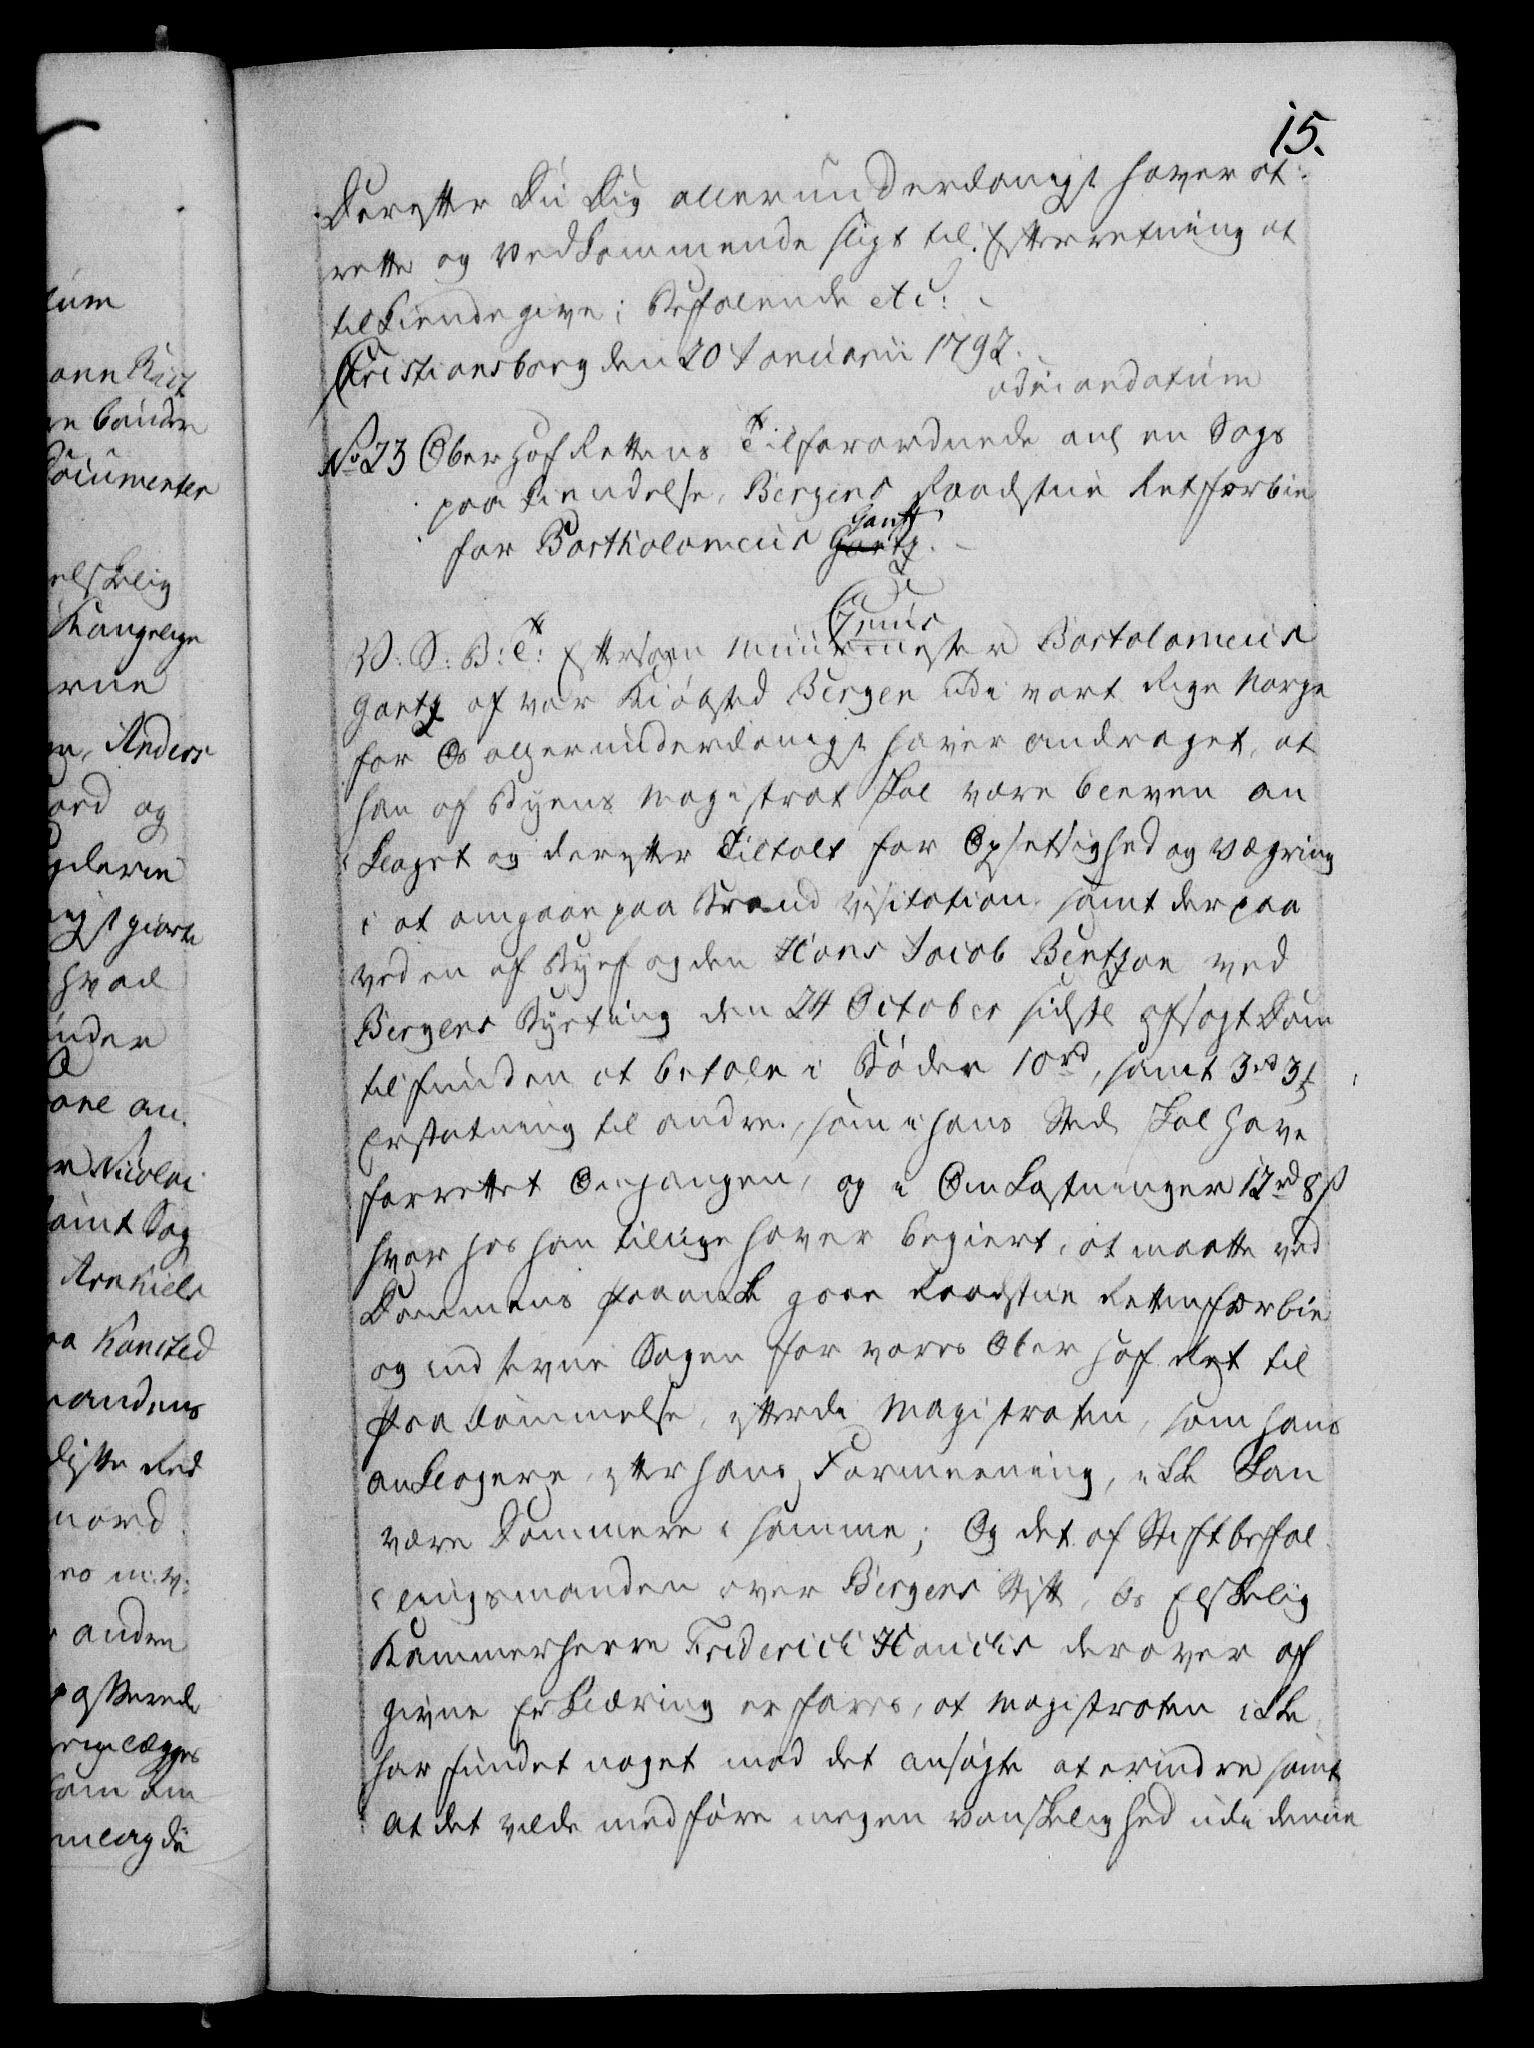 15.
Derefter Du Dig allerunderdanigst haver at
rette og vedkommende sligt til Efterretning at
tilkiendegive; Befalende etc:
Christiansborg den 20 Januarii 1792.
ad mandatum
No 23 Over Hof Rettens Tilforordnede anl en Sags
paa Kiendelse, Bergens Raadstue Ret forbie
for Bartholomeus Gantz
Gartz.
V: S: B: T: Eftersom Muurmester Bartolomeus
Gartz af vor Kiöbsted Bergen udi vort Rige Norge
for Os allerunderdanigst haver andraget, at
han af Byens Magistrat skal være bleven an
klaget og derefter Tiltalt for Opsetsighed og Vægring
i at omgaae paa Brand Visitation samt derpaa
ved en af Byefogden Hans Jacob Bentzon ved
Bergens Byeting den 24 October sidste afsagt Dom
tilfunden at betale i Bøder 10 rd, samt 3 rd 3 ß
Erstatning til andre, som i hans Sted skal have
forrettet Omgangen, og i Omkostninger 12 rd 8 ß
hvorhos han tillige haver begiert, at maatte ved
Dommens Paaank gaae Raadstue Retten forbie
og indstevne Sagen for vores Over Hof Ret til
Paadømmelse, efterdi Magistraten, som hans
anklagere, efter hans Formeening, ikke kan
være Dommere i samme; Og det af Stiftbefal
lingsmanden over Bergens Stift, Os Elskelig
Kammerherre Friderich Hauchs derover af
givne Erklæring erfares, at Magistraten ikke
har fundet noget mod det ansøgte at erindre samt
at det vilde medføre megen vanskelighed udi denne